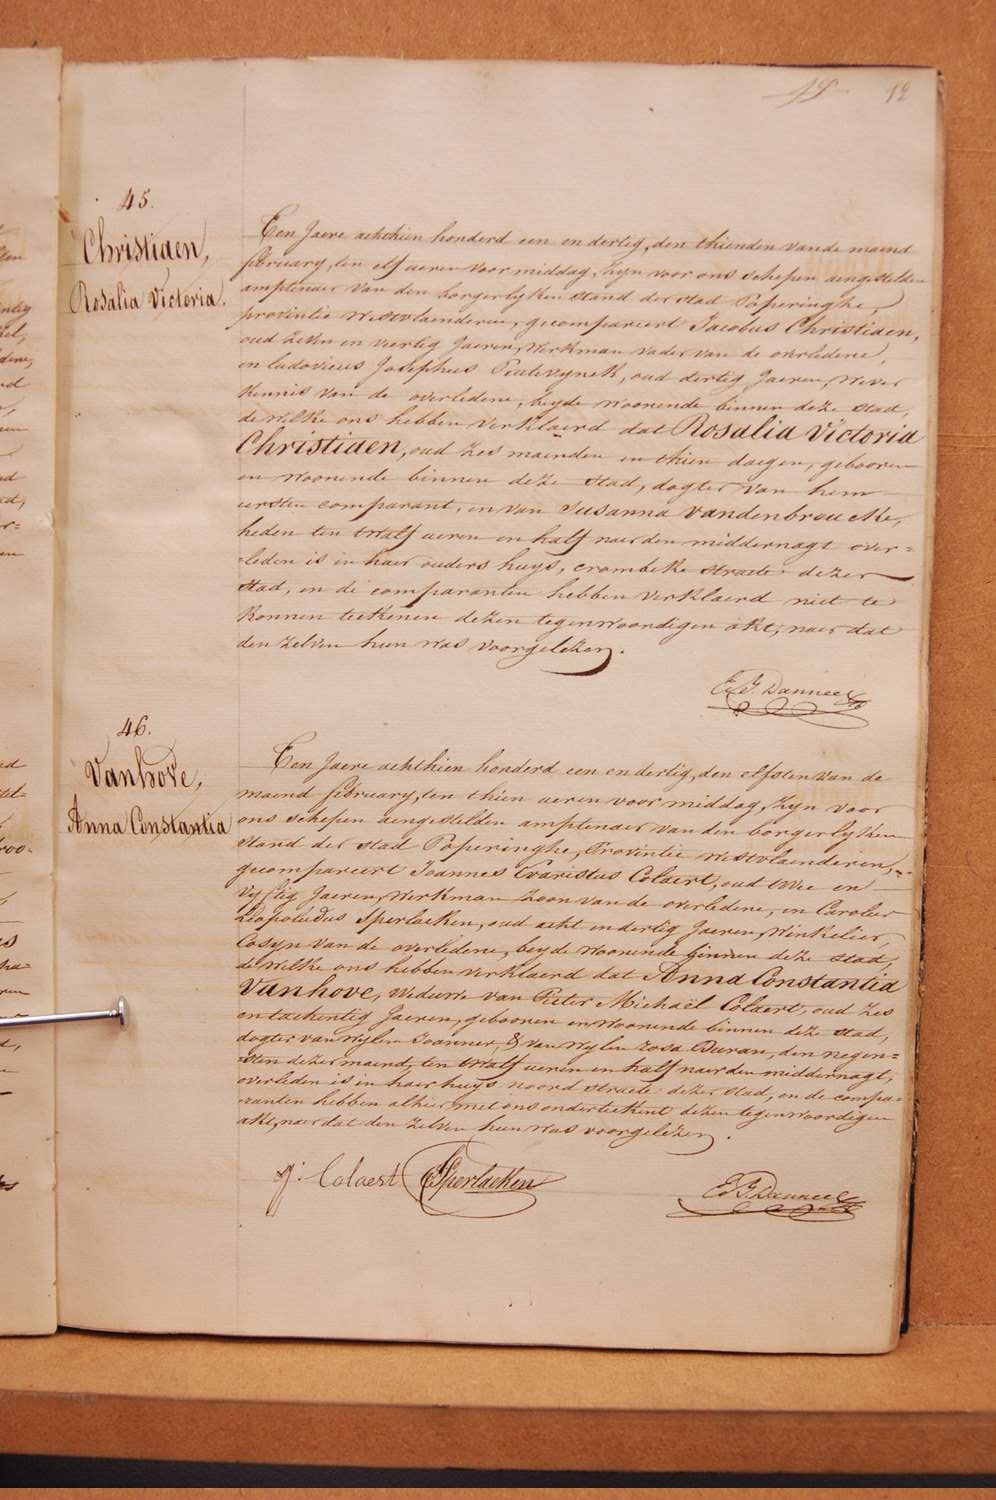 12
45.
Christiaen,
Rosalia Victoria.
Een Jaere achthien honderd een en dertig, den thienden van de maend
february, ten elf ueren voor middag, zyn voor ons schepen aengestelden
amptenaer van den borgerlyken stand der stad Poperinghe,
provintie Westvlaenderen, gecompareert Jacobus Christiaen,
oud zeven en veertig Jaeren, Werkman vader van de overledene,
en Ludovicus Josephus oud dertig Jaeren, Wever
kennis van de overledene, beyde woonende binnen deze stad,
de welke ons hebben verklaerd dat Rosalia Victoria
Christiaen, oud zes maenden en thien daegen, gebooren
en woonende binnen deze stad, dogter van hem
eersten comparant, en van Susanna Vandenbroucke,
heden ten twalf ueren en half naer den middernagt over=
=leden is in haer ouders huys, crombeke straete dezer
stad, en de comparanten hebben verklaerd niet te
konnen teekenen dezen tegenwoordigen akt, naer dat
den zelven hun was voorgelezen.
46.
Vanhove,
Anna Constantia
Een Jaere achthien honderd een en dertig, den elfsten van de
maend february, ten thien ueren voor middag, zyn voor
ons schepen aengestelden amptenaer van den borgerlyken
stand der stad Poperinghe, Provintie Westvlaenderen,
gecompareert Joannes Evaristus Colaert, oud twee en
vyftig Jaeren, Werkman zoon van de overledene, en Carolus
Leopoldus Sperlaeken, oud acht en dertig Jaeren, Winkelier,
Cosyn van de overledene, beyde woonende binnen deze stad,
de welke ons hebben verklaerd dat Anna Constantia
Vanhove, Weduwe van Pieter Michaël Colaert, oud zes
en tachentig Jaeren, gebooren en woonende binnen deze stad,
dogter van wylen Joannes, & van wylen Rosa Duran, den negen=
=sten dezer maend, ten twalf ueren en half naer den middernagt,
overleden is in haer huys noord straete dezer stad, en de compa=
=ranten hebben alhier met ons onderteekent dezen tegenwoordigen
akt, naer dat den zelven hun was voorgelezen.
j. Colaert Sperlaeken